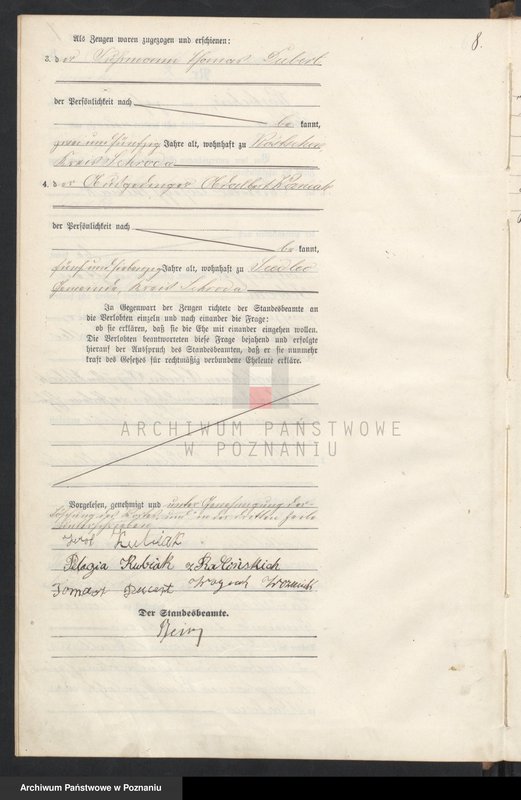 8.
Als Zeugen waren zugezogen und erschienen:
3. der Thomas
der Persönlichkeit nach
be kannt,
zwei und fünfzig Jahre alt, wohnhaft zu
Kreis Schroda
4. der Adalbert
der Persönlichkeit nach
be kannt,
fünf und siebenzig Jahre alt, wohnhaft zu
Gemeinde, Kreis Schroda
In Gegenwart der Zeugen richtete der Standesbeamte an
die Verlobten einzeln und nach einander die Frage:
ob sie erklären, daß sie die Ehe mit einander eingehen wollen.
Die Verlobten beantworteten diese Frage bejahend und erfolgte
hierauf der Ausspruch des Standesbeamten, daß er sie nunmehr
kraft des Gesetzes für rechtmäßig verbundene Eheleute erkläre.
ARCHIWUM PAŃSTWOWE
W POZNANIU
Vorgelesen, genehmigt und unter Genehmigung der
in der dritten Zeile
unterschrieben
Kubiak
Pelagia Kubiak z
Wojciech Wozniak
Der Standesbeamte.
Archiwum Państwowe w Poznaniu